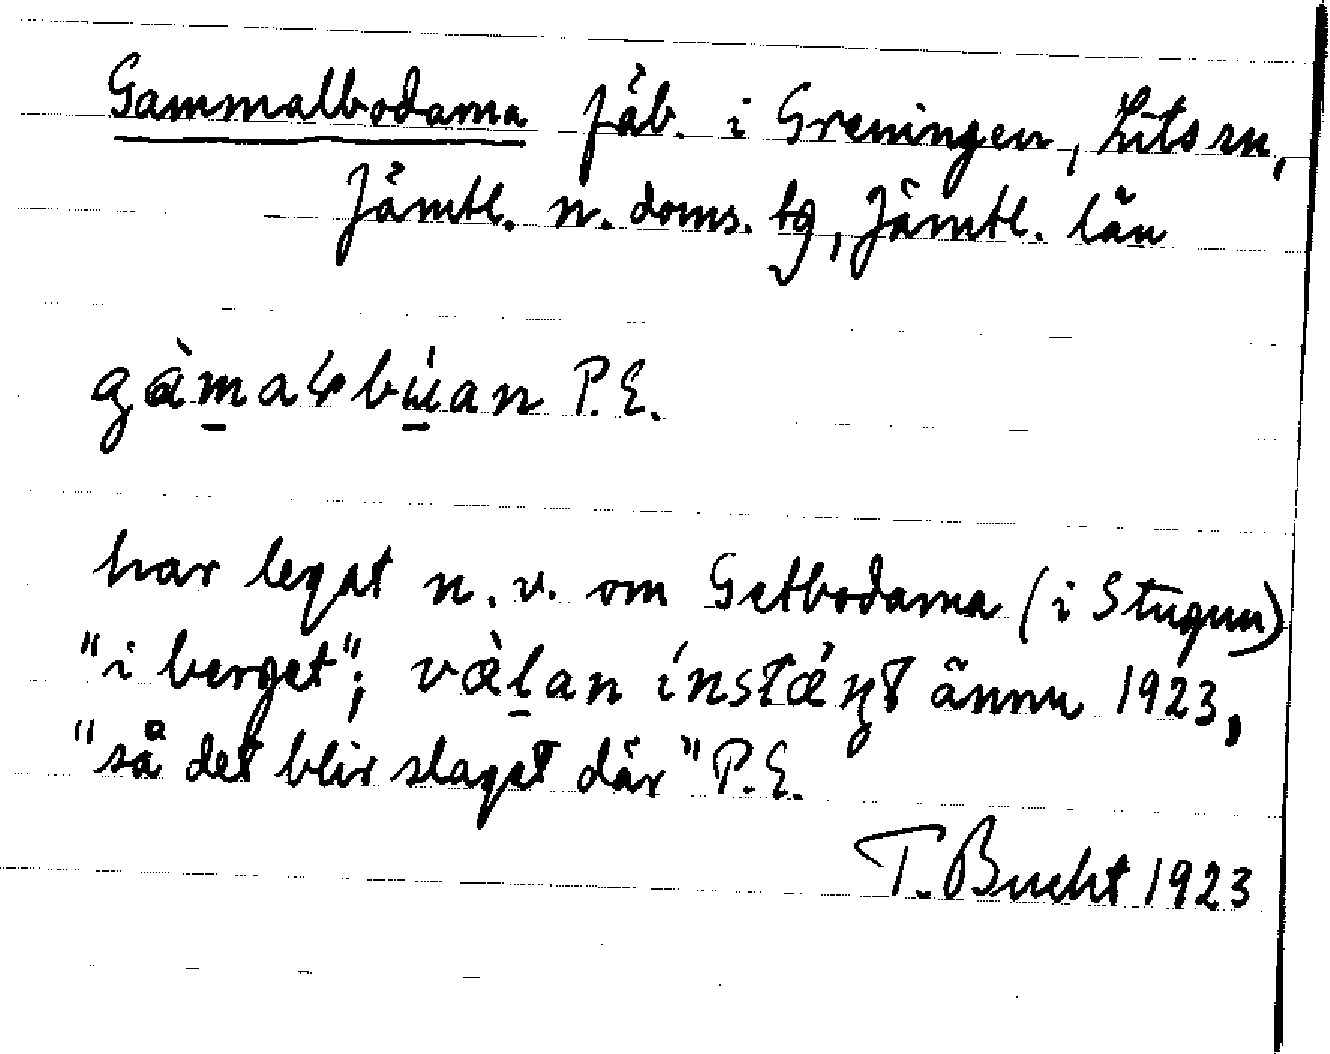 Gammalbodarna fäb. i Greningen, Lits sn,
Jämtl. n. doms. tg, Jämtl. län
gàm̱aɫbu̱̇an P.E.
har legat n.v. om Getbodarna (i Stugun)
"i berget"; væ̀ḻan ínstǽŋt ännu 1923,
"så det blir slaget där" P.E.
T. Bucht 1923